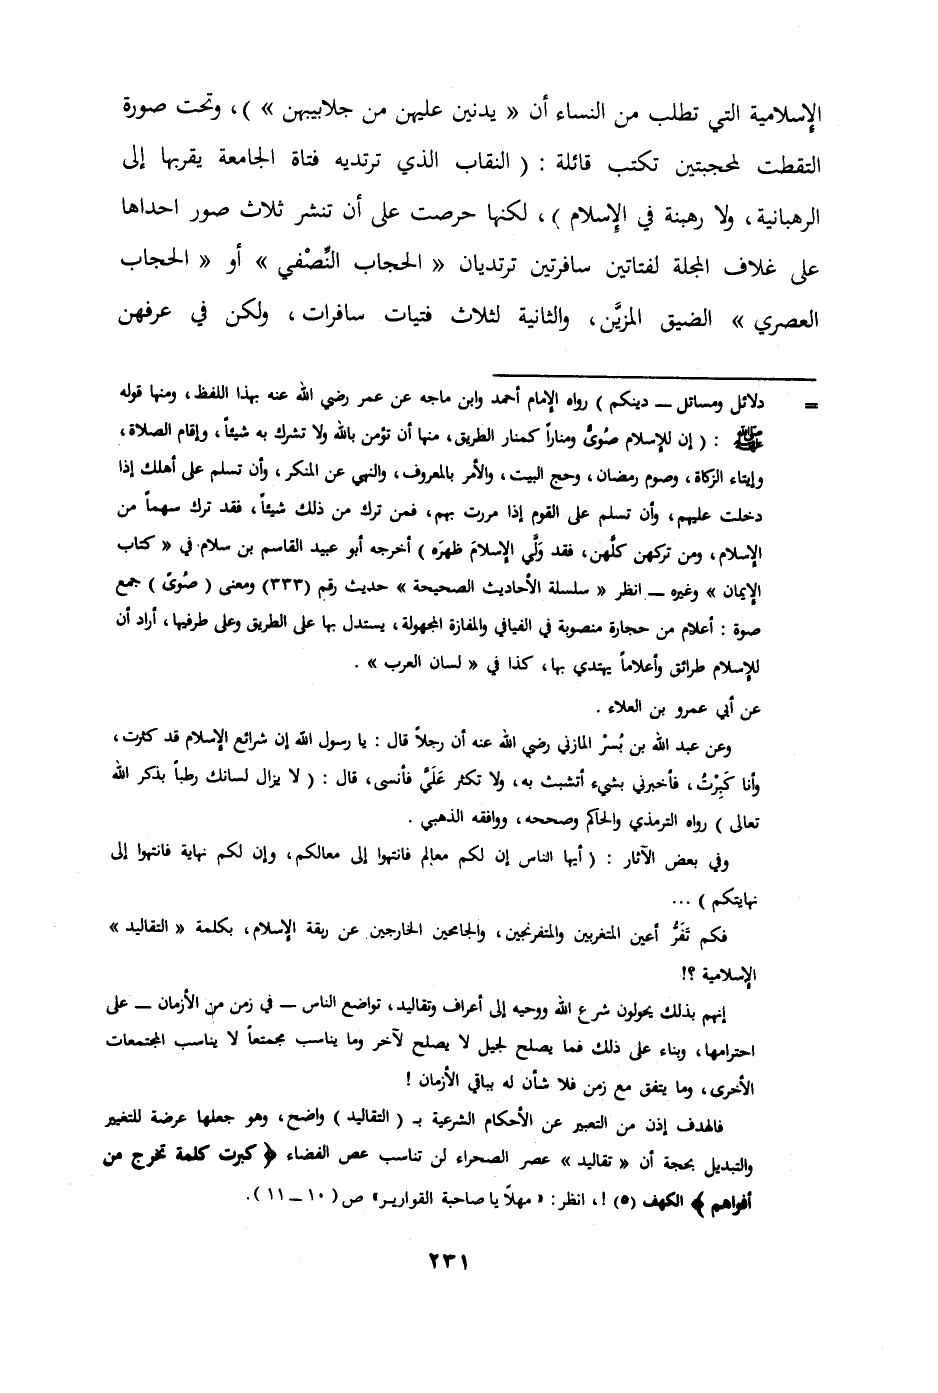 الإسلامية التي تطلب من النساء أن « يدنين عليهن من جلابيبهن » ) ، وتحت صورة
التقطت لمحجبتين تكتب قائلة : ( النقاب الذي ترتديه فتاة الجامعة يقربها إلى
الرهبانية ، ولا رهبنة في الإسلام ) ، لكنها حرصت على أن تنشر ثلاث صور احداها
على غلاف المجلة لفتاتين سافرتين ترتديان « الحجاب النِّصْفي » أو « الحجاب
العصري » الضيق المزيَّن ، والثانية لثلاث فتيات سافرات ، ولكن في عرفهن
= دلائل ومسائل ــ دينكم ) رواه الإمام أحمد وابن ماجه عن عمر رضي الله عنه بهذا اللفظ ، ومنها قوله
ﷺ : ( إن للإسلام صُوىً ومناراً كمنار الطريق ، منها أن تؤمن بالله ولا تشرك به شيئاً ، وإقام الصلاة ،
وإيتاء الزكاة ، وصوم رمضان ، وحج البيت ، والأمر بالمعروف ، والنهي عن المنكر ، وأن تسلم على أهلك إذا
دخلت عليهم ، وأن تسلم على القوم إذا مررت بهم ، فمن ترك من ذلك شيئاً ، فقد ترك سهماً من
الإسلام ، ومن تركهن كلَّهن ، فقد وَلَّي الإسلامَ ظهرَه ) أخرجه أبو عبيد القاسم بن سلام في « كتاب
الإيمان » وغيره ــ انظر « سلسلة الأحاديث الصحيحة » حديث رقم (٣٣٣) ومعنى ( صُوىً ) جمع
صوة : أعلام من حجارة منصوبة في الفيافي والمفازة المجهولة ، يستدل بها على الطريق وعلى طرفيها ، أراد أن
للإسلام طرائق وأعلاماً يهتدي بها ، كذا في « لسان العرب » .
عن أبي عمرو بن العلاء .
وعن عبد الله بن بُسرْ المازني رضي الله عنه أن رجلاً قال : يا رسول الله إن شرائع الإسلام قد كثرت ،
وأنا كَبِرْتُ ، فأخبرني بشيء أتشبث به ، ولا تكثر عَلَيَّ فأنسى ، قال : ( لا يزال لسانك رطباً بذكر الله
تعالى ) رواه الترمذي والحاكم وصححه ، ووافقه الذهبي .
وفي بعض الآثار : ( أيها الناس إن لكم معالم فانتهوا إلى معالكم ، وإن لكم نهاية فانتهوا إلى
نهايتكم ) ...
فكم تَقَرُّ أعين المتغربين والمتفرنجين ، والجامحين الخارجين عن ربقة الإسلام ، بكلمة « التقاليد »
الإسلامية ؟!
إنهم بذلك يحولون شرع الله ووحيه إلى أعراف وتقاليد ، تواضع الناس ــ في زمن من الأزمان ــ على
احترامها ، وبناء على ذلك فما يصلح لجيل لا يصلح لآخر وما يناسب مجتمعاً لا يناسب المجتمعات
الأخرى ، وما يتفق مع زمن فلا شأن له بباقي الأزمان !
فالهدف إذن من التعبير عن الأحكام الشرعية بـ ( التقاليد ) واضح ، وهو جعلها عرضة للتغيير
والتبديل بحجة أن « تقاليد » عصر الصحراء لن تناسب عصر الفضاء ﴿ كبرت كلمة تخرج من
أفواهم ﴾ الكهف (٥) !، انظر : « مهلاً يا صاحبة القوارير » ص ( ١٠ ــ ١١ ) .
٢٣١